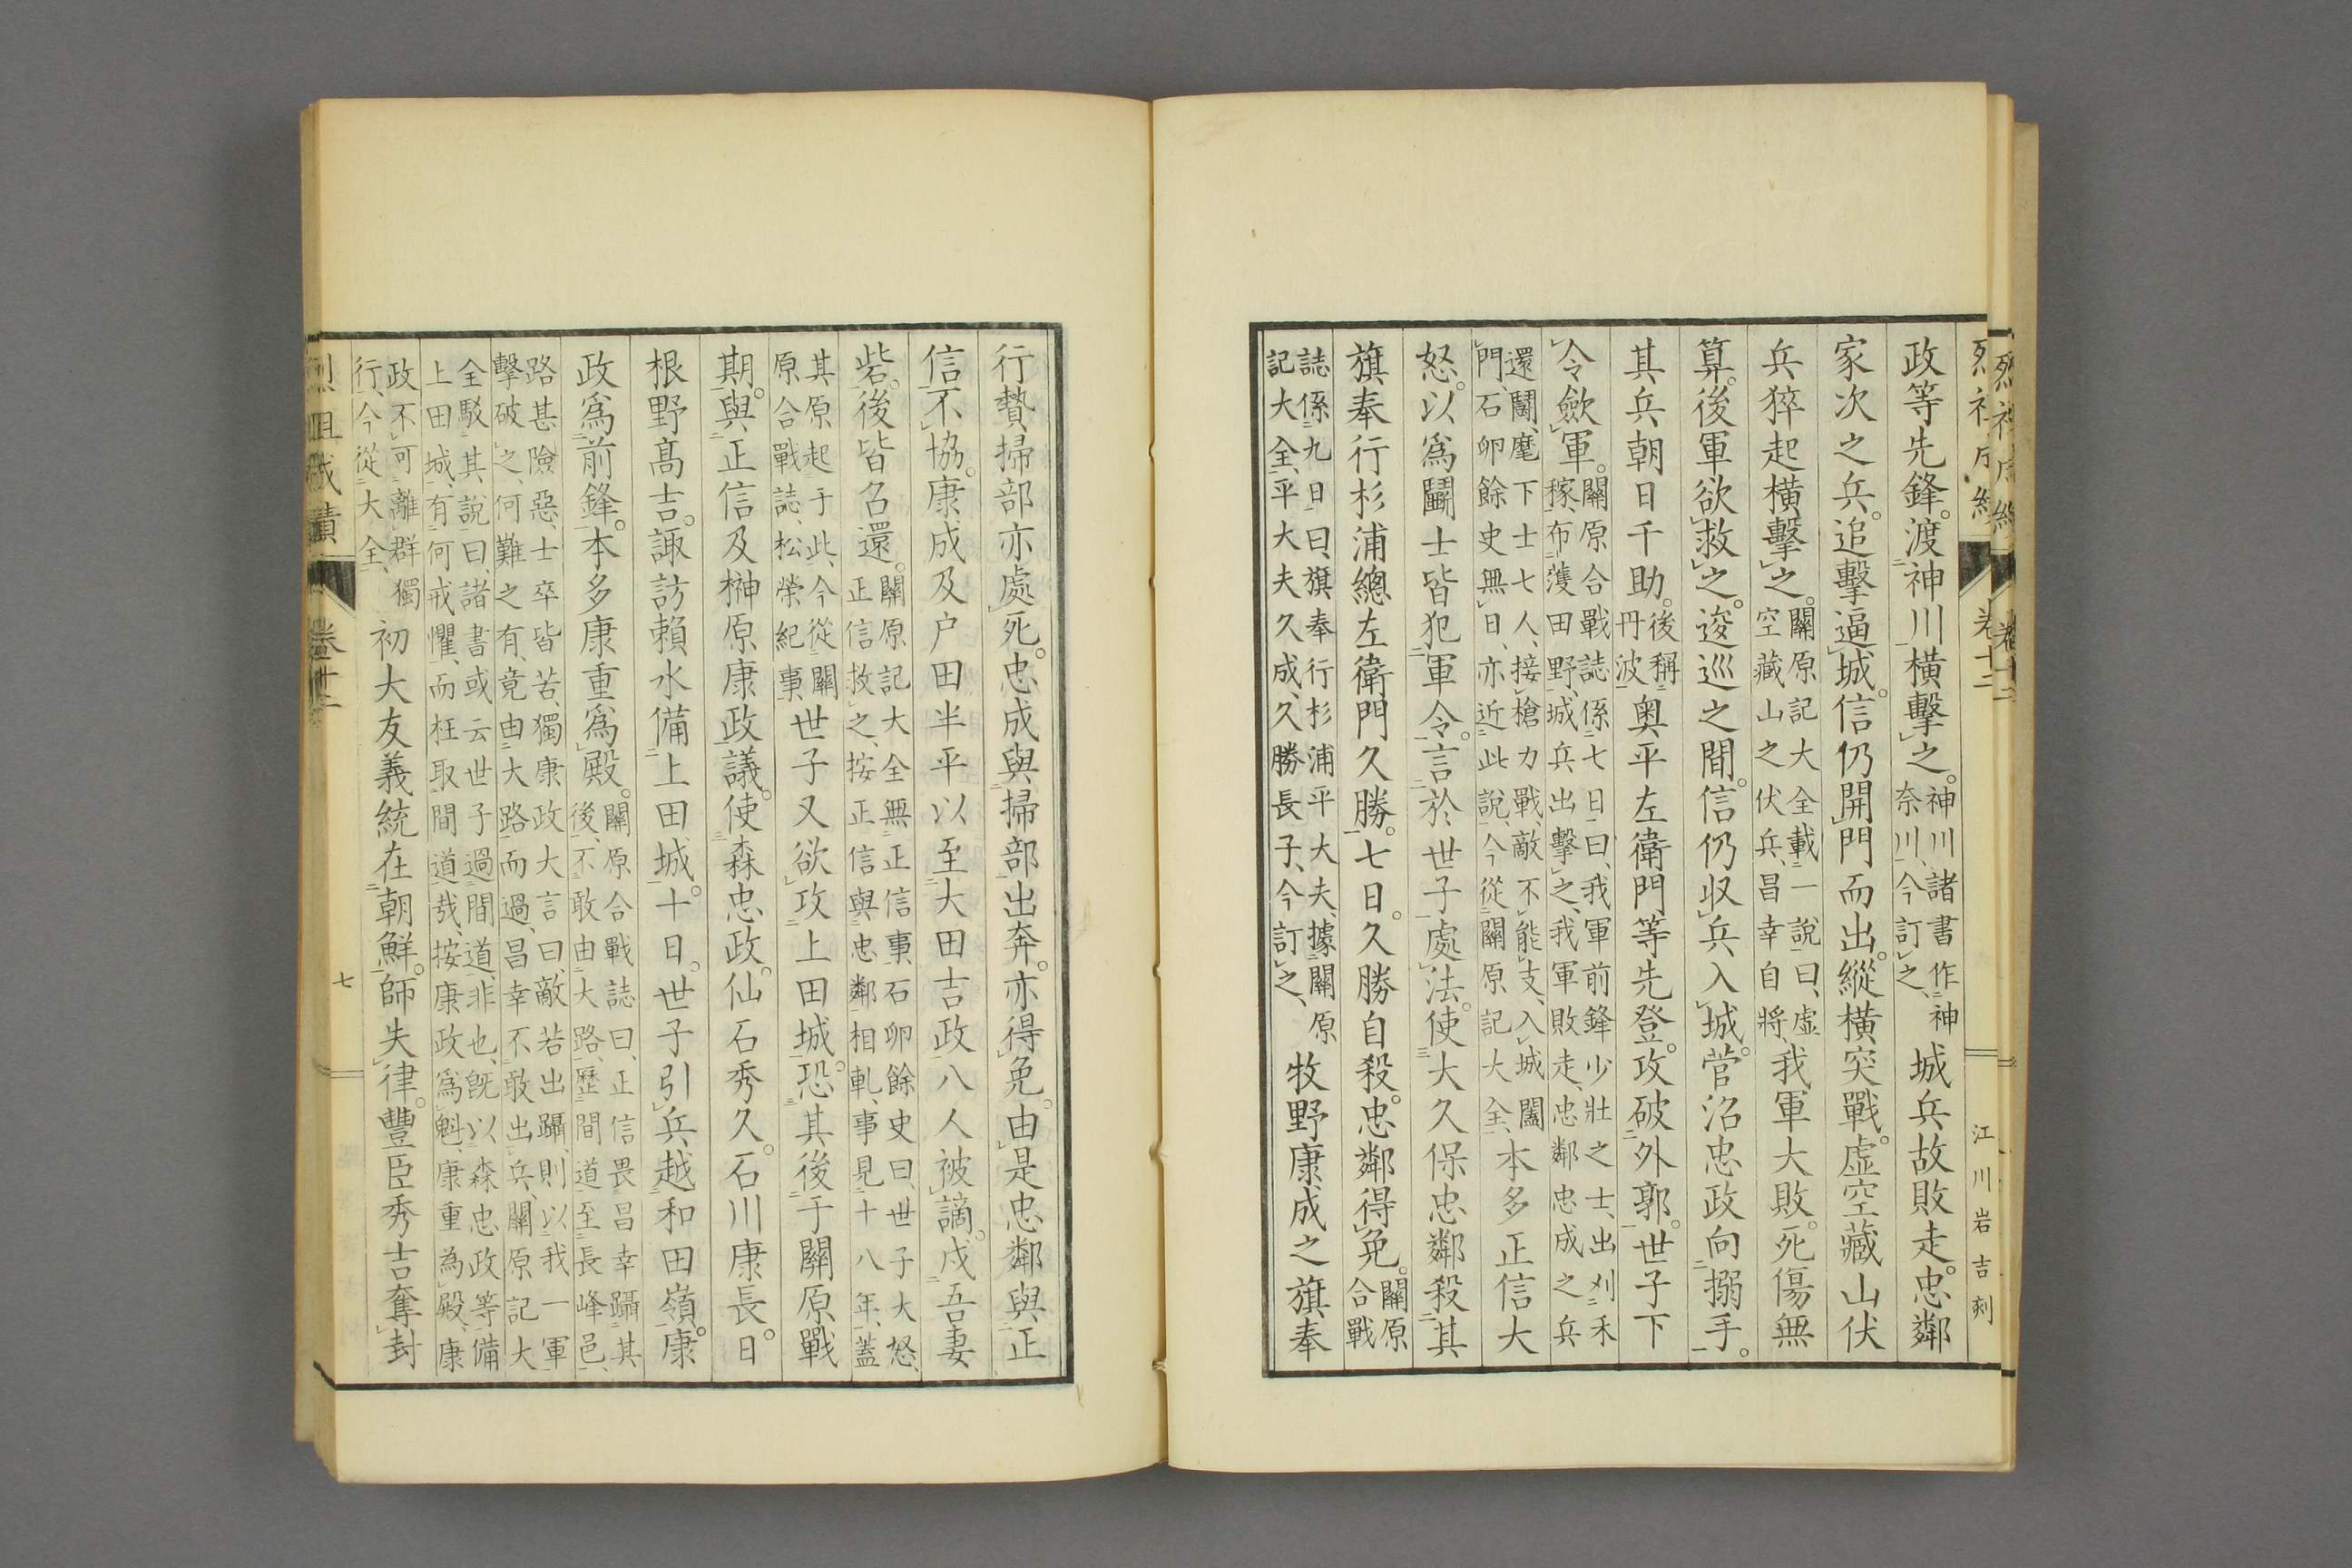 政等先鋒。渡神川横擊之。神川諸書作神奈川、今訂之、城兵故敗走。忠鄰
家次之兵。追擊逼城。信仍開門而出。縱橫突戰。虛空藏山伏
兵猝起橫擊之。關原記大全載一說曰、虛空藏山之伏兵、昌幸自將、我軍大敗。死傷無
算。後軍欲救之。逡巡之間。信仍収兵入城。菅沼忠政向搦手。
其兵朝日千助。後稱丹波奥平左衛門等先登。攻破外郭。世子下
令斂軍。關原合戰誌係七日曰、我軍前鋒少壯之士、出刈禾稼、布護田野、城兵出擊之、我軍敗走、忠鄰忠成之兵
還鬪、麾下士七人、接槍力戰、敵不能支、入城闔門、石卵餘史無日、亦近此說、今從關原記大全、本多正信大
怒。以為鬭士皆犯軍令。言於世子處法。使大久保忠鄰殺其
旗奉行杉浦總左衛門久勝。七日。久勝自殺。忠鄰得免。關原合戰
誌係九日曰、旗奉行杉浦平大夫、據關原記大全、平大夫久成、久勝長子、今訂之、牧野康成之旗奉
江川岩吉刻
行贄掃部亦處死。忠成與掃部出奔。亦得免。由是忠鄰與正
信不協。康成及户田半平以至大田吉政八人被謫。戍吾妻
砦。後皆召還。關原記大全無正信事、石卵餘史曰、世子大怒、正信救之、按正信與忠鄰相軋、事見十八年、蓋
其原起于此、今從關原合戰誌、松榮紀事、世子又欲攻上田城。恐其後于關原戰
期。與正信及榊原康政議。使森忠政。仙石秀久。石川康長。日
根野髙吉。諏訪頼水備上田城。十日。世子引兵越和田嶺。康
政為前鋒。本多康重為殿。關原合戰誌曰、正信畏昌幸躡其後、不敢由大路、歷間道至長峰邑、
路甚險惡、士卒皆苦、獨康政大言曰、敵若出躡、則以我一軍擊破之、何難之有、竟由大路而過、昌幸不敢出兵、關原記大
全駁其說曰、諸書或云世子過間道、非也、既以森忠政等備上田城、有何戒懼、而枉取間道哉、按康政為魁、康重為殿、康
政不可離群獨行、今從大全、初大友義統在朝鮮。師失律。豐臣秀吉奪封
七